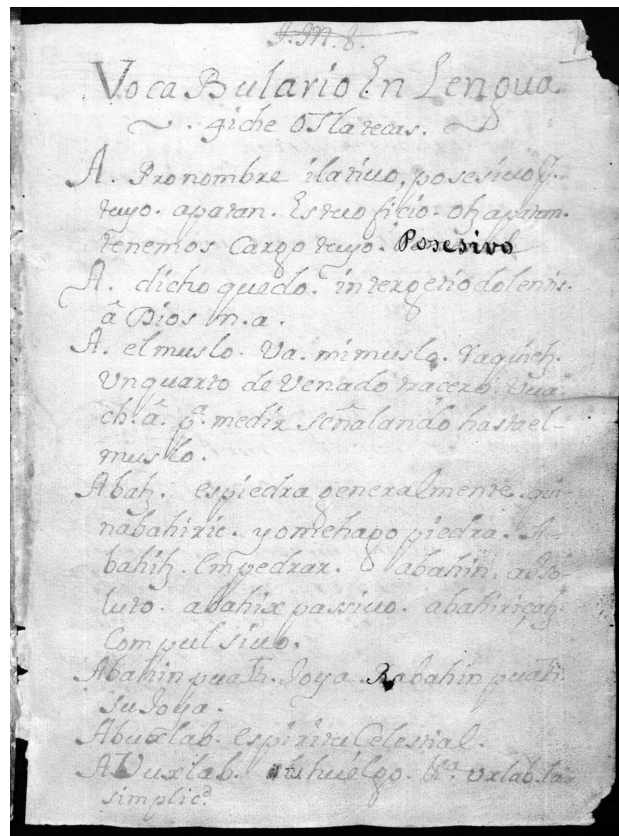 J. M. J.
VocaBulario En Lengua
qiche O Tlatecas.
A. Pronombre ilativo, posesivo
tuyo. apatan. Es tu oficio. oh apatan.
tenemos Cargo tuyo. Posesivo
A. dicho quedo. intergetio dolentis.
â Dios
A. el muslo. Va. mi muslo.
Vn quarto de Venado
ch. â. pª. medir señalando hasta el
muslo.
Abah. es piedra generalmente. qui-
nabahiric. yo me hago piedra. A-
bahih. Empedrar. abahin. abso-
luto. abahix passivo.
Compulsivo.
Abahin puath. Joya. Rabahin puath
su Joya.
Abuxlab. espiritu Celestial.
AVuxlab. tu huelgo. uxlab. la
simplic.